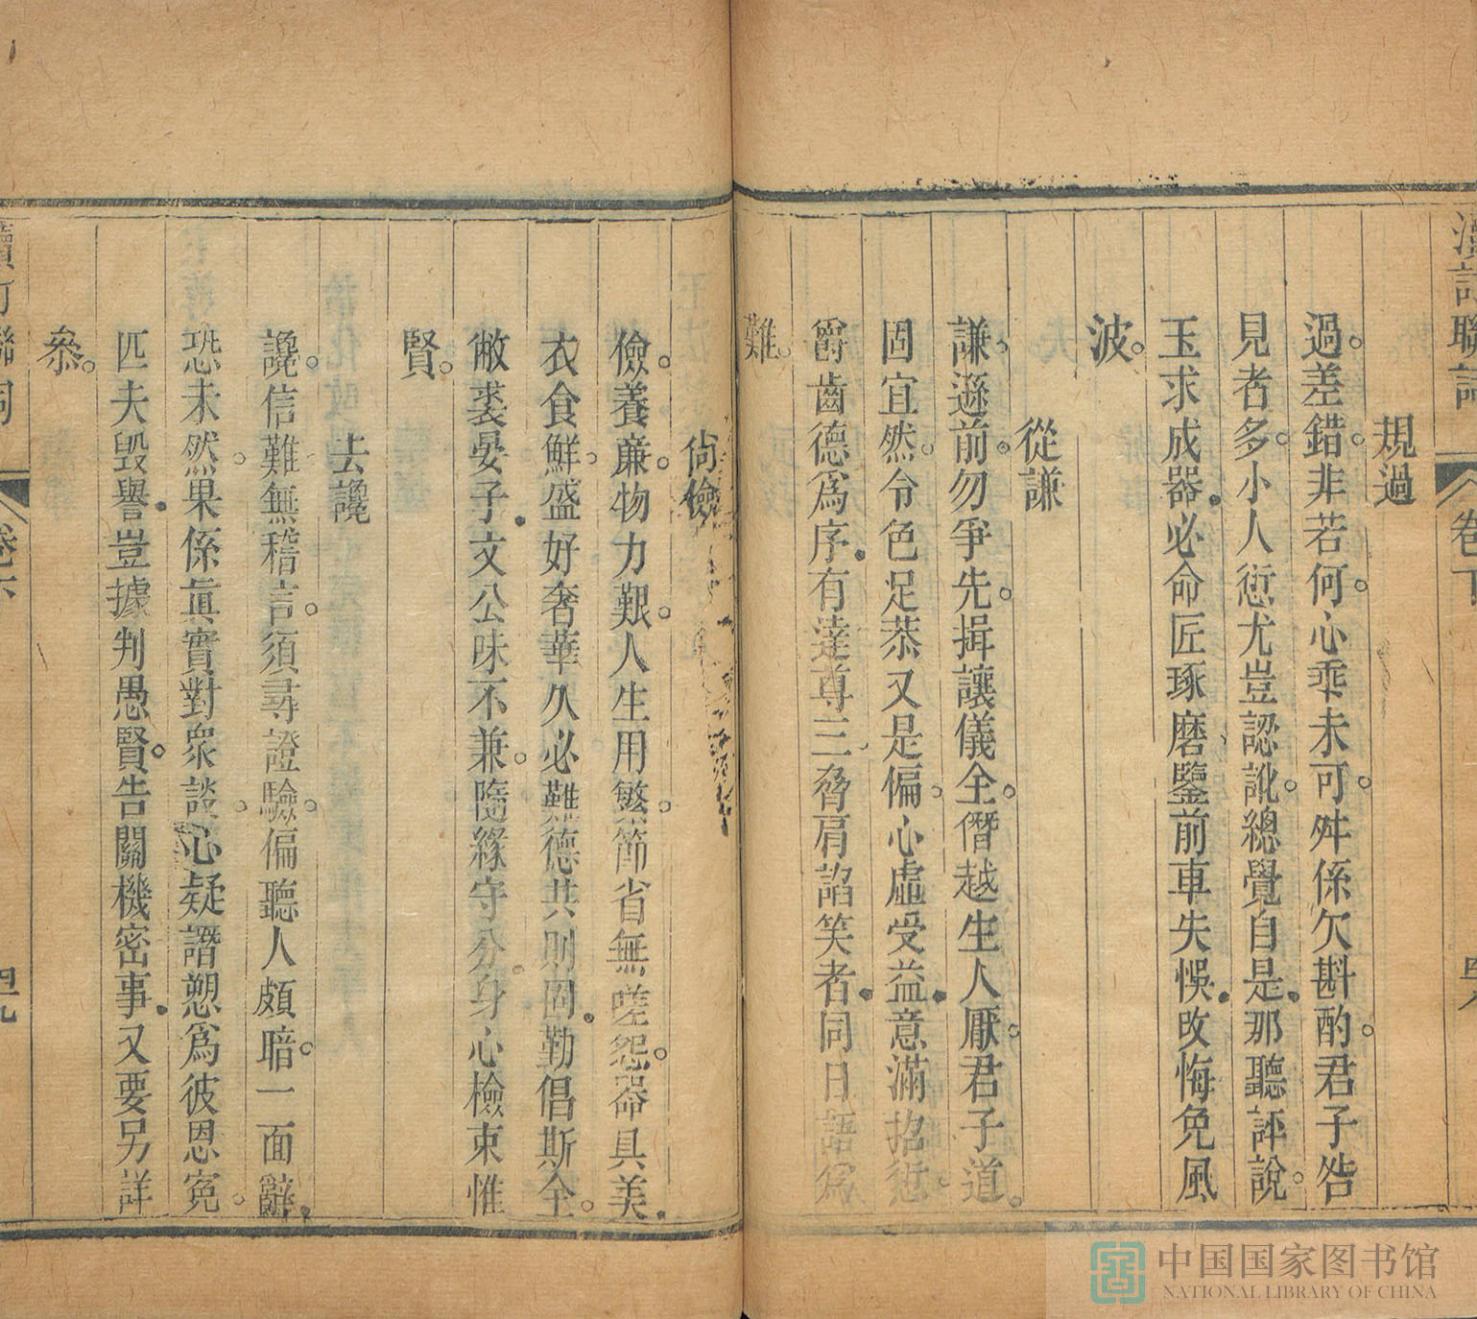 規過
過差錯非若何心乖未可舛係欠斟酌君子咎
見者多小人愆尤豈認訛總覺自是那聽評說
玉求成器必命匠琢磨鑒前車失悞改悔免風
波
從謙
謙遜前勿爭先揖讓儀全僭越生人厭君子道
固宜然令色足恭又是偏心虛受益意滿招愆
爵齒德爲序有達尊三脅肩諂笑者同日語爲
難
尙儉
儉養廉物力艱人生用繁節省無嗟怨器具美
衣食鮮盛好奢華久必難德共則固勤倡斯全
敝裘晏子文公味不兼隨緣守分身心檢束惟
賢
去讒
讒信難無稽言須尋證驗偏聽人頗暗一面辭
恐未然果係眞實對衆談心疑譖愬爲彼恩寃
匹夫毀譽豈據判愚賢告關機密事又要另詳
叅
卷下
中国国家图书馆
NATIONAL LIBRARY OF CHINA